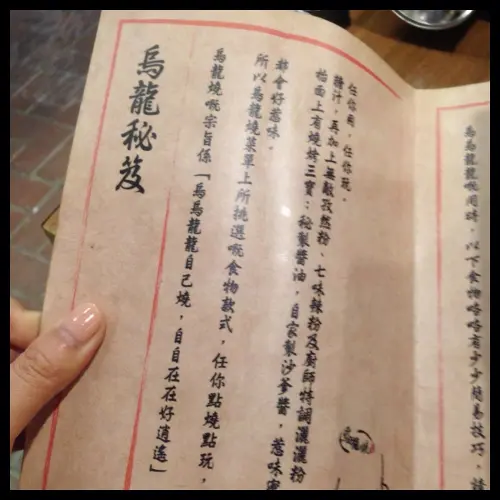 烏龍秘笈
烏龍燒嘅宗旨係「烏烏龍龍自己燒，自自在在好逍遙」
所以烏龍燒菜單上所挑選嘅食物款式，任你點燒點玩，
都會好惹味。
枱面上有燒烤三寶：秘製醬油，自家製沙爹醬，惹味
醬汁，再加上無敵孜然粉、七味辣粉及廚師特調瀟灑粉
任你用，任你玩。
烏烏龍龍嘅同時，以下食物略略有少少簡易技巧，